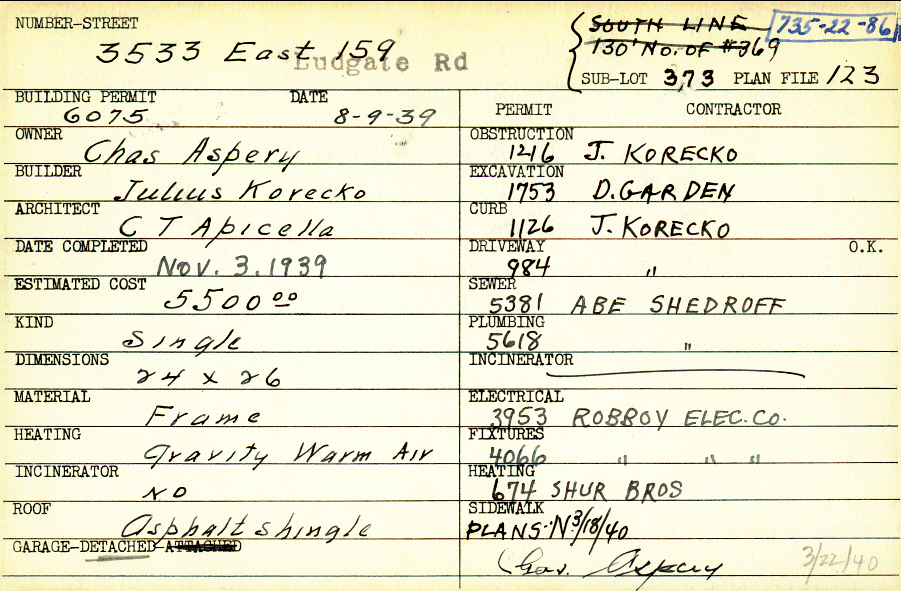 NUMBER-STREET
3533 East 159
Ludgate Rd
SOUTH LINE
130' NO. OF #369
735-22-86
SUB-LOT 373 PLAN FILE 123
BUILDING PERMIT DATE
6075 8-9-39
OWNER
Chas Aspery
BUILDER
Julius Korecko
ARCHITECT
C T Apicella
DATE COMPLETED
Nov. 3. 1939
ESTIMATED COST
5500 00
KIND
Single
DIMENSIONS
24 x 26
MATERIAL
Frame
HEATING
Gravity Warm Air
INCINERATOR
NO
ROOF
Asphalt Shingle
GARAGE-DETACHED-ATTACHED
PERMIT CONTRACTOR
OBSTRUCTION
1216 J. KORECKO
EXCAVATION
1753 D. GARDEN
CURB
1126 J. KORECKO
DRIVEWAY O.K.
984 "
SEWER
5381 ABE SHEDROFF
PLUMBING
5618 "
INCINERATOR
ELECTRICAL
3953 ROBBOY ELEC. CO.
FIXTURES
4066 " " "
HEATING
674 SHUR BROS
SIDEWALK
PLANS-N 3/18/40
Chas. Aspery
3/22/40